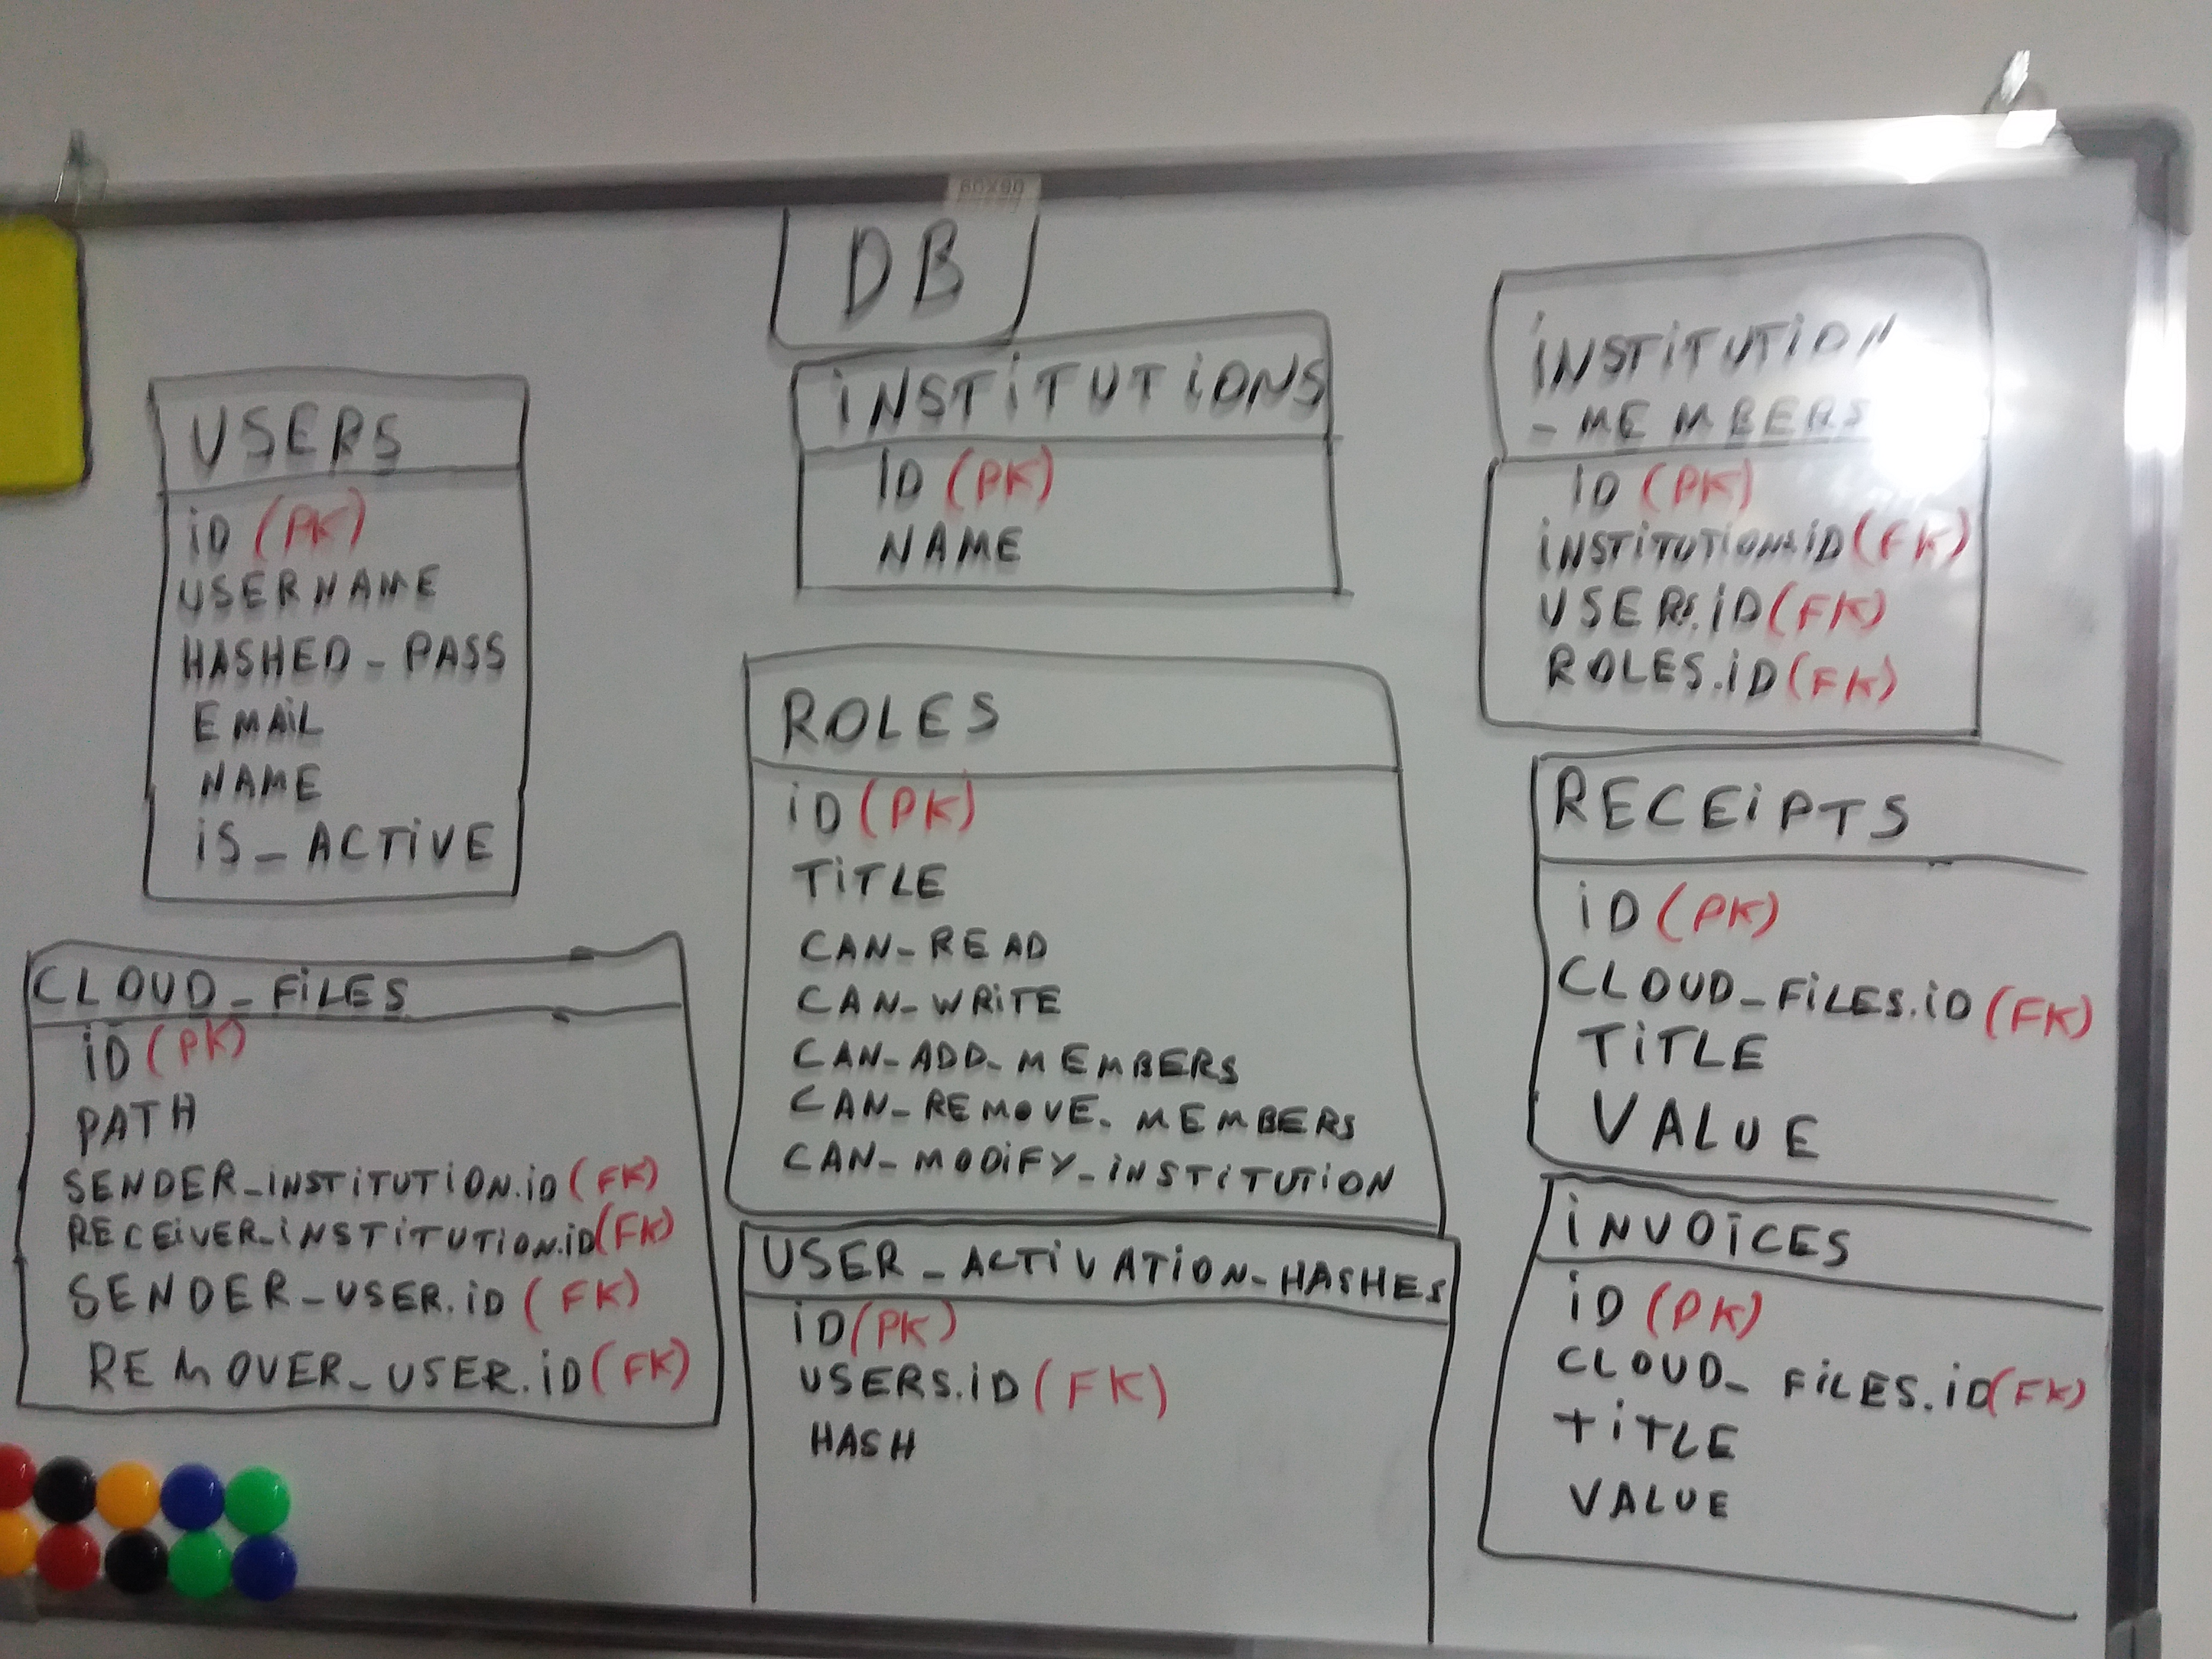 60X90
DB
USERS
iD (PK)
USERNAME
HASHED_PASS
EMAiL
NAME
iS_ACTiVE
CLOUD_FiLES
iD (PK)
PATH
SENDER_iNSTiTUTiON.iD (FK)
RECEiVER_iNSTiTUTiON.iD (FK)
SENDER_USER.iD (FK)
REMOVER_USER.iD (FK)
iNSTiTUTiONS
iD (PK)
NAME
ROLES
iD (PK)
TiTLE
CAN_READ
CAN_WRiTE
CAN_ADD_MEMBERS
CAN_REMOVE_MEMBERS
CAN_MODiFY_iNSTiTUTiON
USER_ACTiVATiON_HASHES
iD (PK)
USERS.iD (FK)
HASH
iNSTiTUTiON
_MEMBERS
iD (PK)
iNSTiTUTiONS.iD (FK)
USERS.iD (FK)
ROLES.iD (FK)
RECEiPTS
iD (PK)
CLOUD_FiLES.iD (FK)
TiTLE
VALUE
iNVOiCES
iD (PK)
CLOUD_FiLES.iD (FK)
TiTLE
VALUE